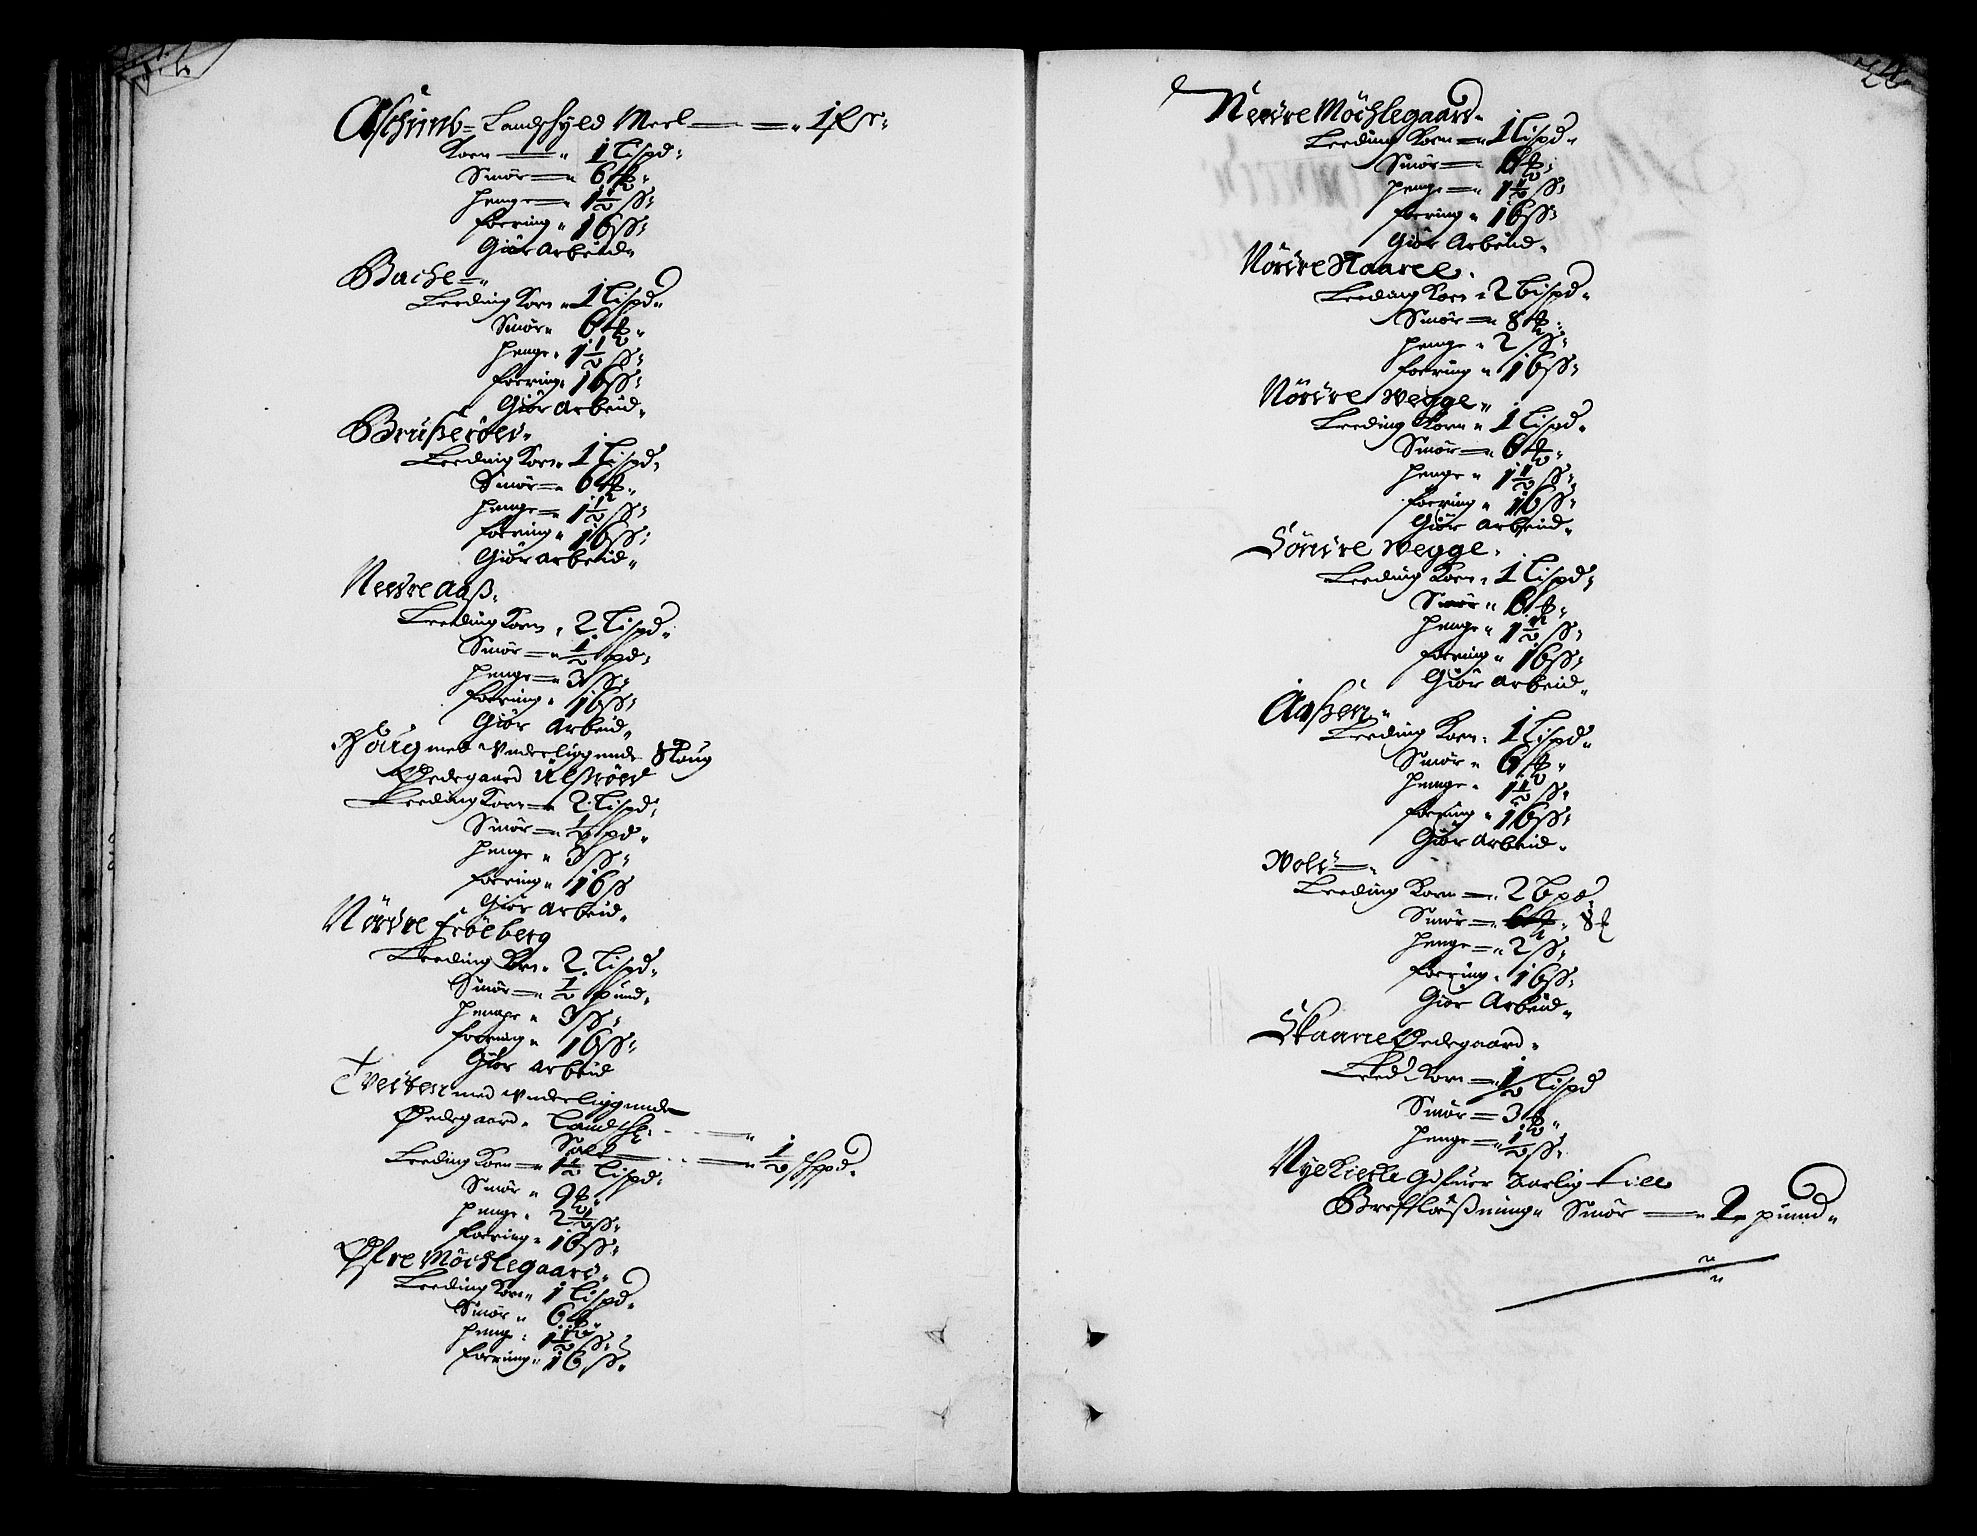 Aschimb= Landschyld Meel — =„ 1 
Korn — „ 1 Lispd:
Smör — „ 6 ℔:
Penge — „ 1½ ß:
foering „ 16 ß:
Giör Arbeid„
Bache =„
Leeding Korn „ 1 Lispd„
Smör „ 6 ℔„
Penge „ 1½ ß:
foering „ 16 ß:
Giör Arbeid„
Brußeröed„
Leeding Korn „ 1 Lispd:
Smör — „ 6 ℔„
Penge — „ 1½ ß:
foering „ 16 ß:
Giör Arbeid„
Nedre Aaß„
Leeding Korn „ 2 Lispd„
Smör — „ ½ pd:
Penge — „ 3 ß:
foering „ 16 ß:
Giör Arbeid„
Houg med Underliggende
Ödegaard
Leeding Korn — „ 2 Lispd:
Smör — „ ½ pd„
Penge „ 3 ß:
foering „ 16 ß
Giör Arbeid„
Nordre Fröeberg
Leeding Korn „ 2 Lispd„
Smör — „ ½ pund„
Penge „ 3 ß:
foering „ 16 ß:
Giör Arbeid
Tvedten med Underliggende
Ödegaard„ Landsch:
Salt — — „ ½ schppd„
Leeding Korn — „ 1½ Lispd:
Smör „ 9 ℔:
Penge „ 2½ ß:
foering „ 16 ß:
Östre Möchlegaard„
Leeding Korn „ 1 Lispd„
Smör „ 6 ℔
Penge „ 1½ ß:
foering „ 16 ß:
24
Nedre Möchlegaard„
Leeding Korn — „ 1 Lispd„
Smör — „ 6 ℔:
Penge — „ 1½ ß:
foering „ 16 ß:
Giör Arbeid„
Nordre Skaarel„
Leeding Korn „ 2 Lispd„
Smör — „ 8 ℔:
Penge „ 2 ß:
foering „ 16 ß:
Nordre Wegge„
Leeding Korn „ 1 Lispd„
Smör — „ 6 ℔:
Penge „ 1½ ß:
foering „ 16 ß:
Giör Arbeid„
Söndre Wegge„
Leeding Korn „ 1 Lispd:
Smör „ 6 ℔:
Penge „ 1½ ß:
foering „ 16 ß:
Giör Arbeid„
Aaßen„
Leeding Korn „ 1 Lispd„
Smör „ 6 ℔„
Penge „ 1½ ß:
foering „ 16 ß:
Giör Arbeid„
Wold =„
Leeding Korn — „ 2 Bpd:
Smör — „ 6 ℔„ 8 ℔
Penge — „ 2 ß:
foering „ 16 ß:
Giör Arbeid„
Skaane Ödegaard„
Leed: Korn — „ ½ Lispd
Smör — 3 ℔„
Penge — „ ½ ß:
Nye Kircke Gifuer Aarlig till
Breffläßning„ Smör — „ 1 pund„